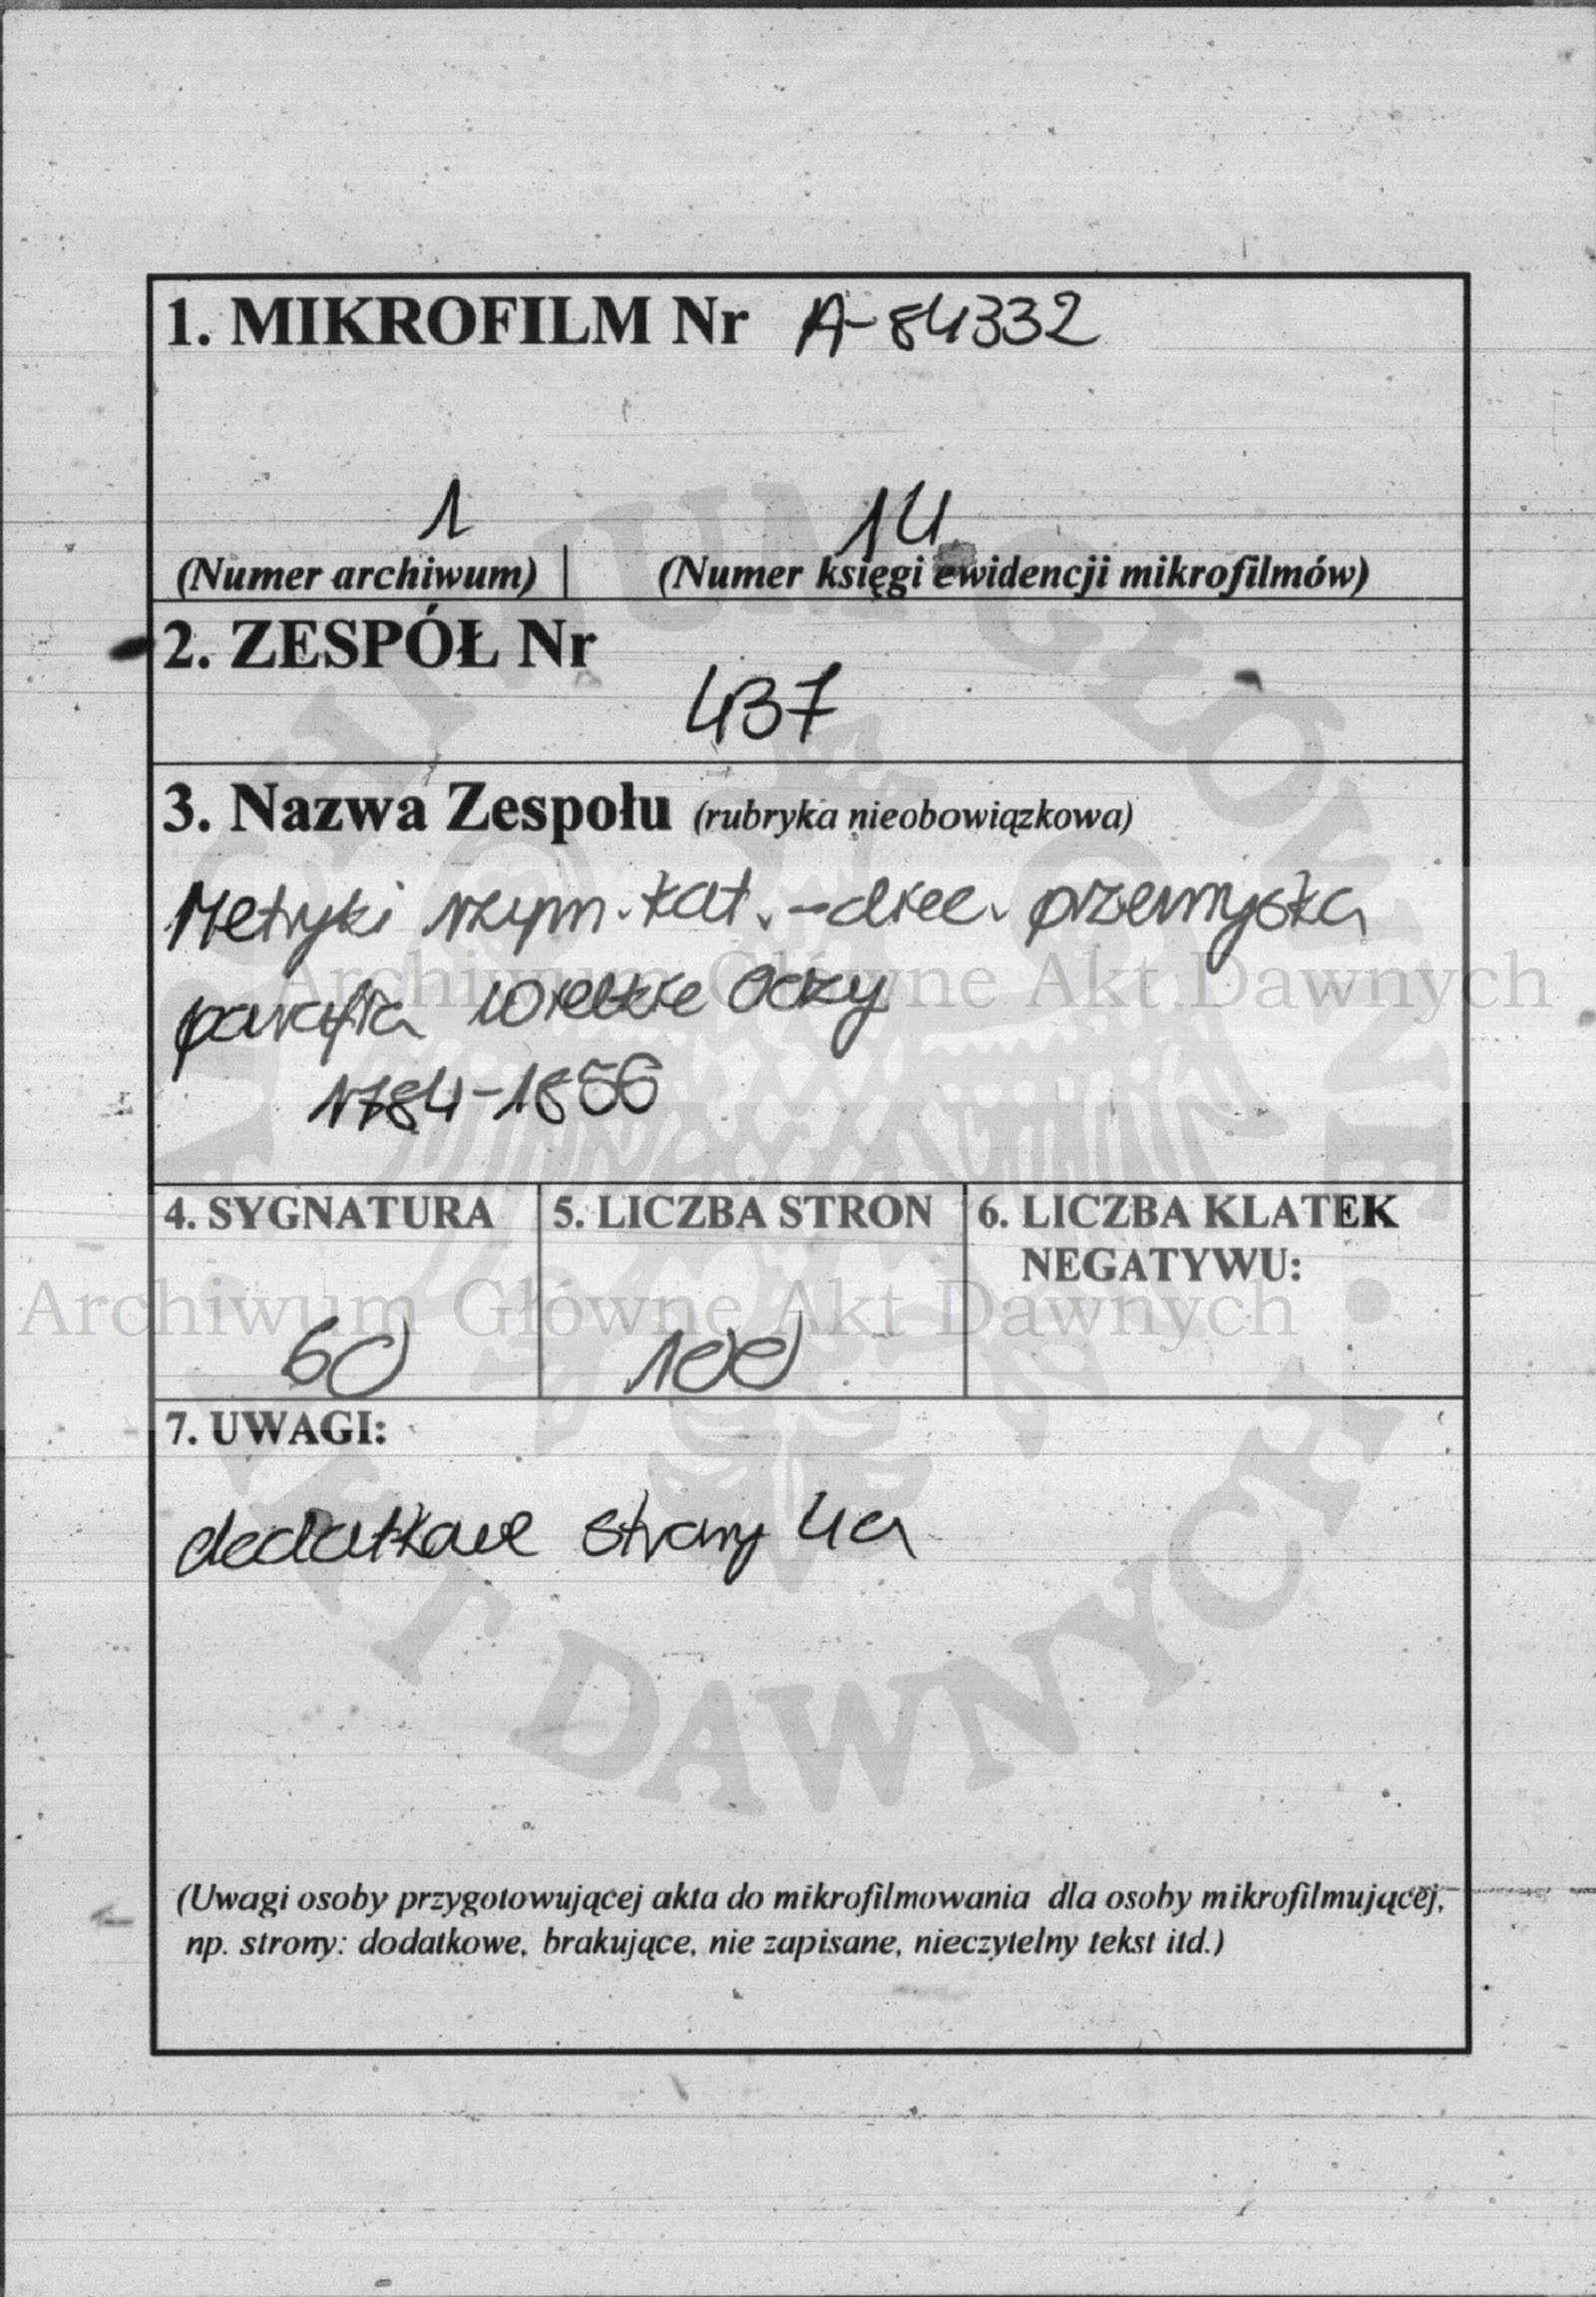 1. MIKROFILM Nr A-84332
1 14
(Numer archiwum) | (Numer księgi ewidencji mikrofilmów)
2. ZESPÓŁ Nr
437
3. Nazwa Zespołu (rubryka nieobowiązkowa)
Metryki rzym.-kat. - diec. przemyska
Archiwum Główne Akt Dawnych
parafia Wielkie Oczy
1784-1856
4. SYGNATURA 5. LICZBA STRON 6. LICZBA KLATEK
NEGATYWU:
Archiwum Główne Akt Dawnych
60 100
7. UWAGI:
dodatkowe strony 4a
(Uwagi osoby przygotowującej akta do mikrofilmowania dla osoby mikrofilmującej,
np. strony: dodatkowe, brakujące, nie zapisane, nieczytelny tekst itd.)
ARCHIWUM GŁÓWNE AKT DAWNYCH